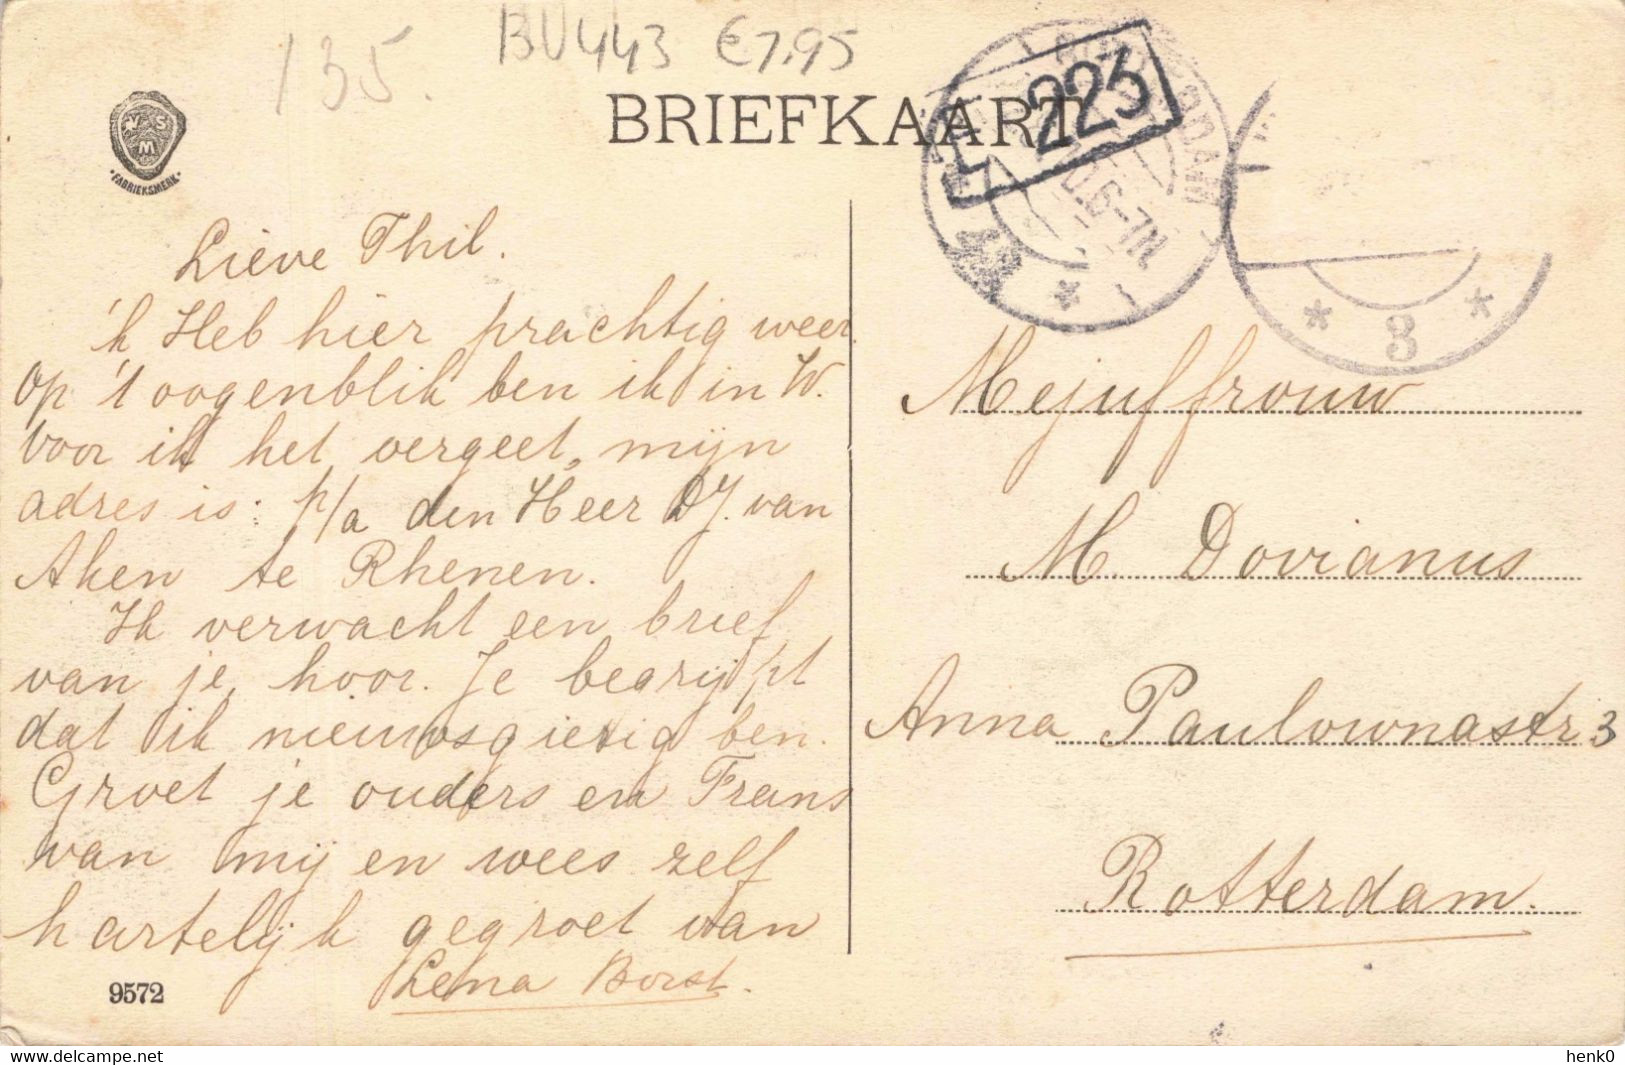 135.
BU443 €7,95
BRIEFKAART
L 223
V S
M
FABRIEKSMERK
6-7N
3
Lieve Thil.
'k Heb hier prachtig weer.
Op 't oogenblik ben ik in W.
Voor ik het vergeet, mijn
adres is: p/a den Heer D.J. van
Aken te Rhenen.
Ik verwacht een brief
van je, hoor. Je begrijpt
dat ik nieuwsgierig ben.
Groet je ouders en Frans
van mij en wees zelf
hartelijk gegroet van
Lena Borst.
9572
Mejuffrouw
M. Dovianus
Anna Paulownastr 3
Rotterdam.
henk0